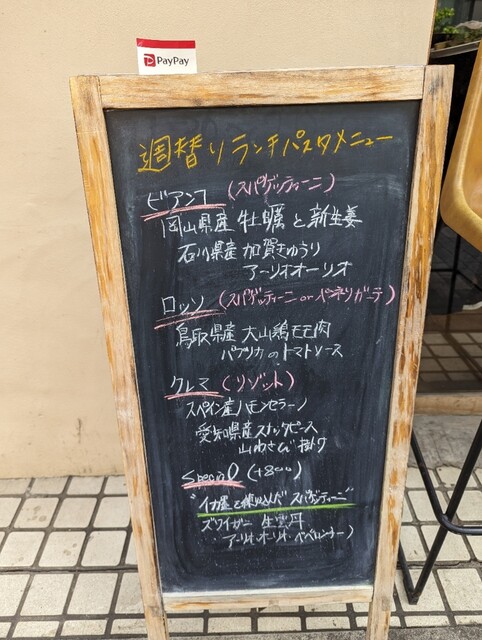 PayPay
週替りランチパスタメニュー
ビアンコ (スパゲッティーニ)
岡山県産 牡蠣と新生姜
石川県産 加賀きゅうり
アーリオオーリオ
ロッソ (スパゲッティーニ or ペンネリガーテ)
鳥取県産 大山鶏モモ肉
パプリカのトマトソース
クレマ (リゾット)
スペイン産ハモンセラーノ
愛知県産スナップピース
山わさび掛け
Special (+800)
"イカ墨を練り込んだスパゲッティーニ"
ズワイガニ 生雲丹
アーリオ・オーリオ・ペペロンチーノ